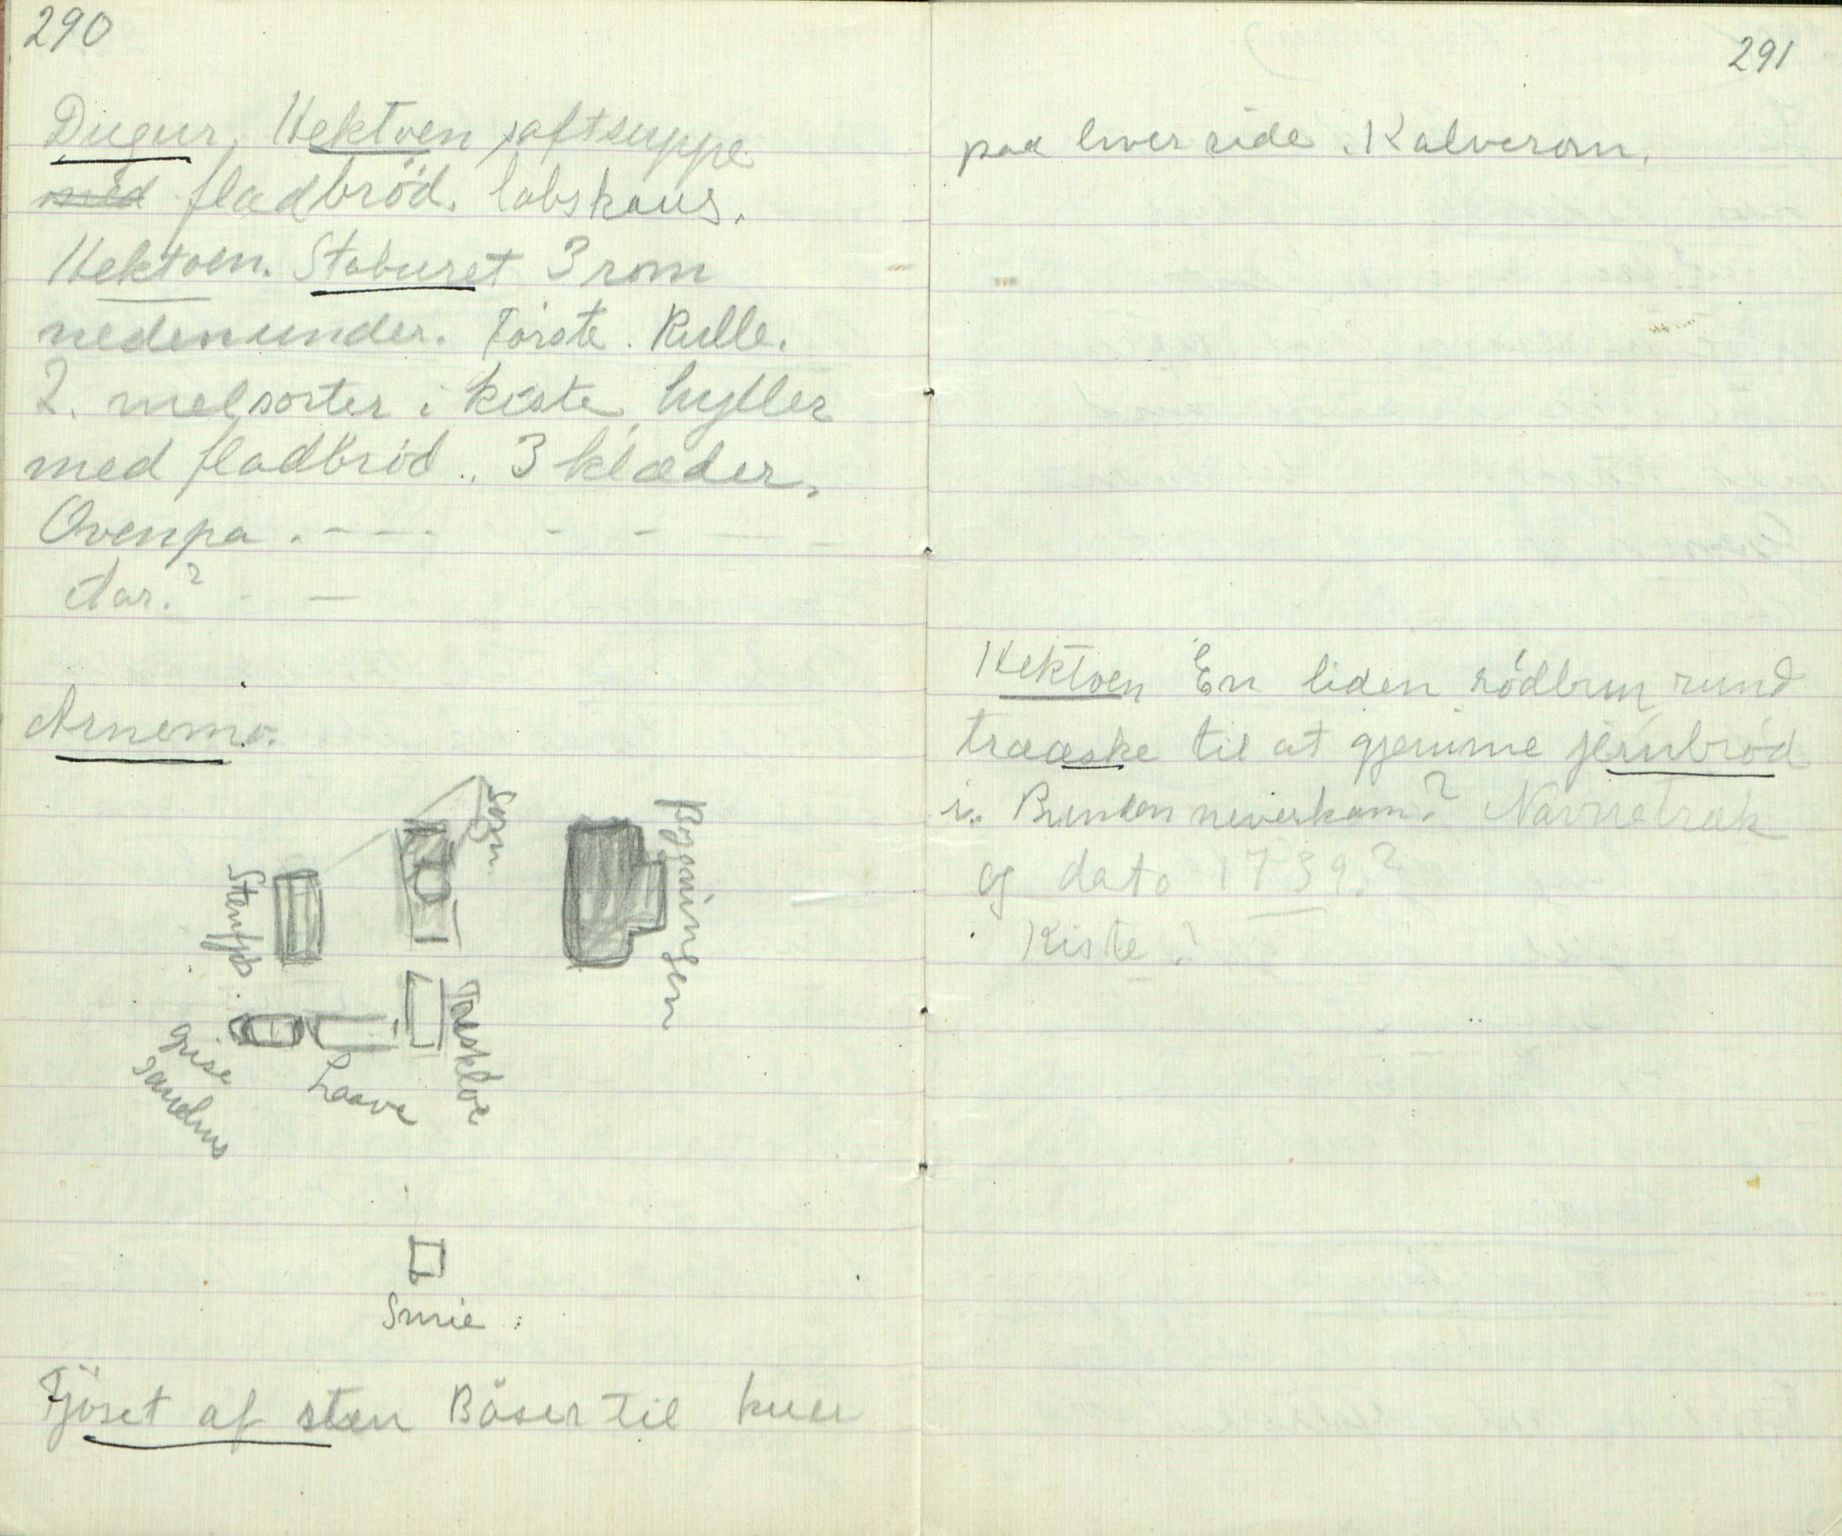 290
Dugur, Hektoen saftsuppe
med fladbröd. labskaus.
Hektoen. Staburet 3 rom
nedenunder. Förste. Rulle.
2. melsorter i kiste, hyller
med fladbröd. 3 klæder.
Ovenpa . - - - - - - -
Aar.? - -
Arnemo.
Bygningen
Stenfjös.
Treskloe
grise
sauehus
Laave
Smie.
Fjöset af sten Båser til kuer
291
paa hver side. Kalverom.
Hektoen En liden rödbrun rund
traæske til at gjemme jernbröd
i. Bunden neverkam? Navnetræk
og dato 1739.?
Kiste?